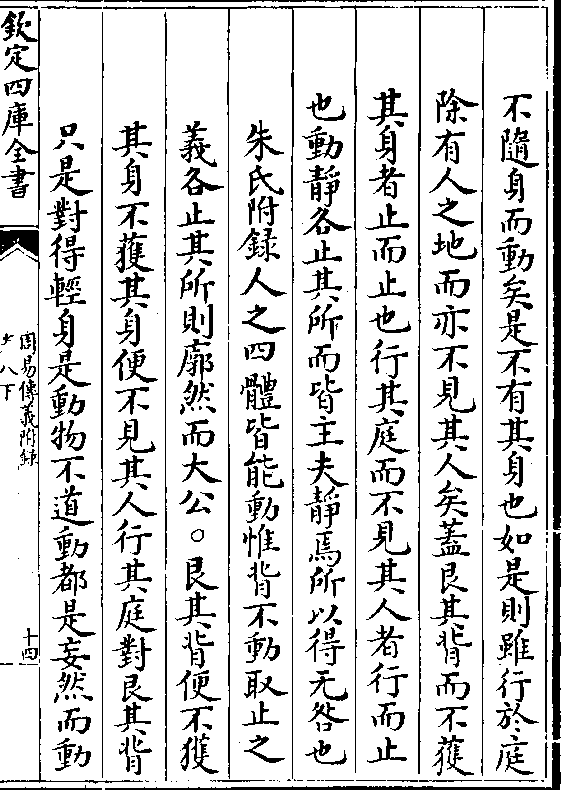 不隨身而動矣是不有其身也如是則雖行於庭
除有人之地而亦不見其人矣蓋艮其背而不獲
其身者止而止也行其庭而不見其人者行而止
也動靜各止其所而皆主夫靜焉所以得无咎也
朱氏附錄人之四體皆能動惟背不動取止之
義各止其所則廓然而大公○艮其背便不獲
其身不獲其身便不見其人行其庭對艮其背
只是對得輕身是動物不道動都是妄然而動
欽定四庫全書
周易傳義附錄
卷八下
十四